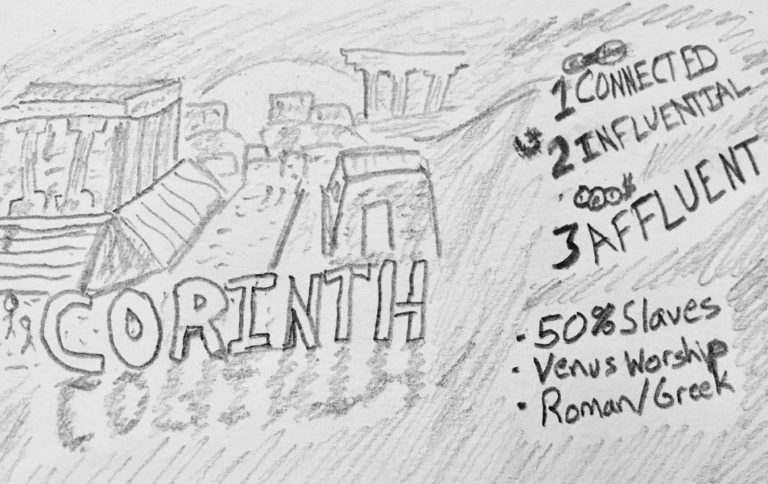 CORINTH
1 CONNECTED
2 INFLUENTIAL
3 AFFLUENT
• 50% Slaves
• Venus Worship
• Roman/Greek